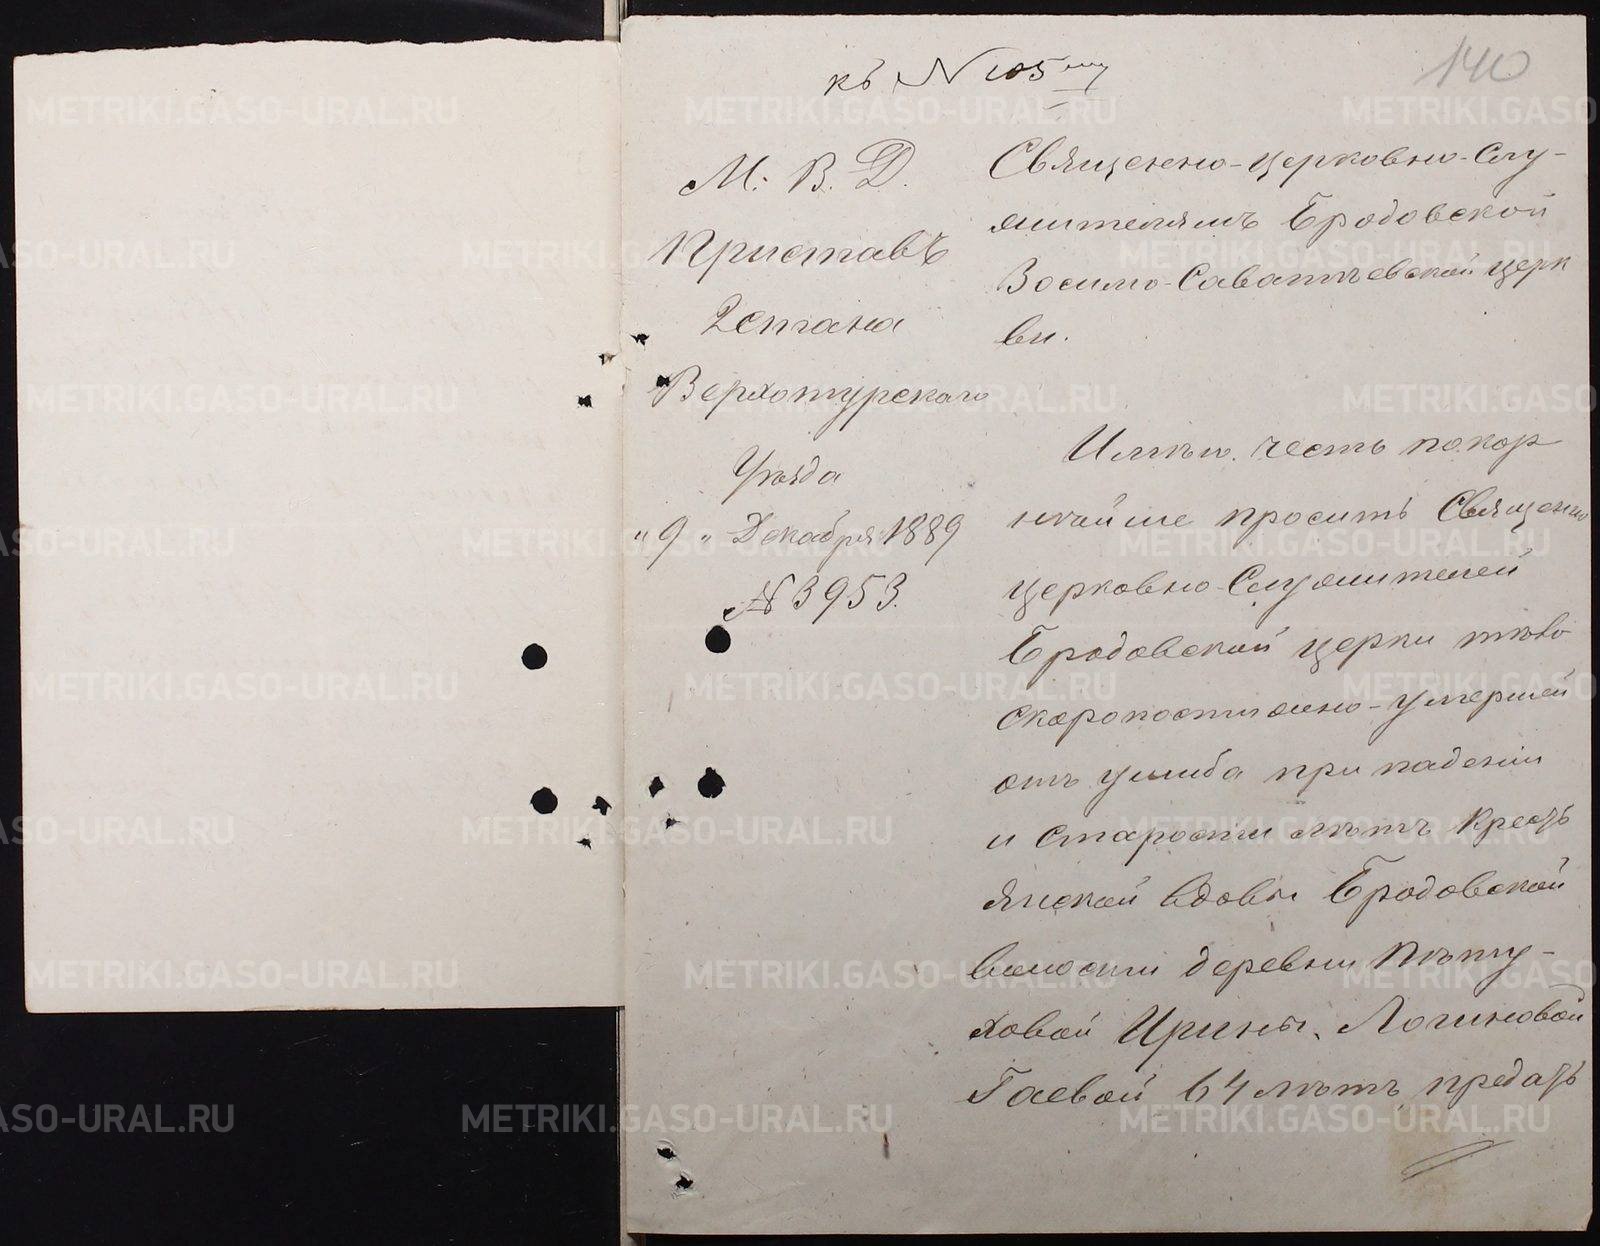 къ N 105му
140
М. В. Д.
Приставъ
2 стана
Верхотурскаго
Уѣзда
"9" Декабря 1889
N 3953.
Священно-церковно-Слу-
жителямъ Бродовской
Зосимо-Саватьевской церк
ви.
Имѣю честь покор
нѣйше просить Священно
церковно-Служителей
Бродовской церки тѣло
скоропостижно-умершей
отъ ушиба при падении
и старости лѣтъ кресть
янской вдовы Бродовской
волости деревни Пѣту-
ховой Ирины Логиновой
Гаевой 64 лѣтъ предать
METRIKI.GASO-URAL.RU